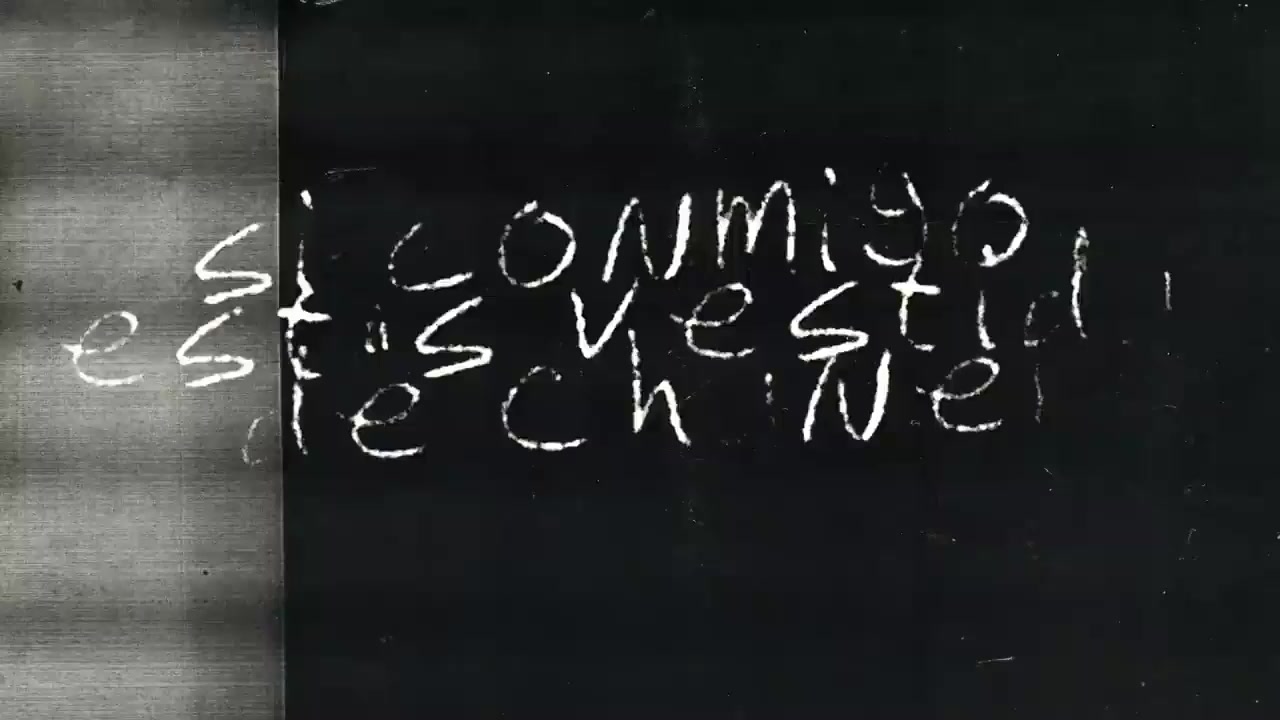 si conmigo
estás vestida
de Chanel